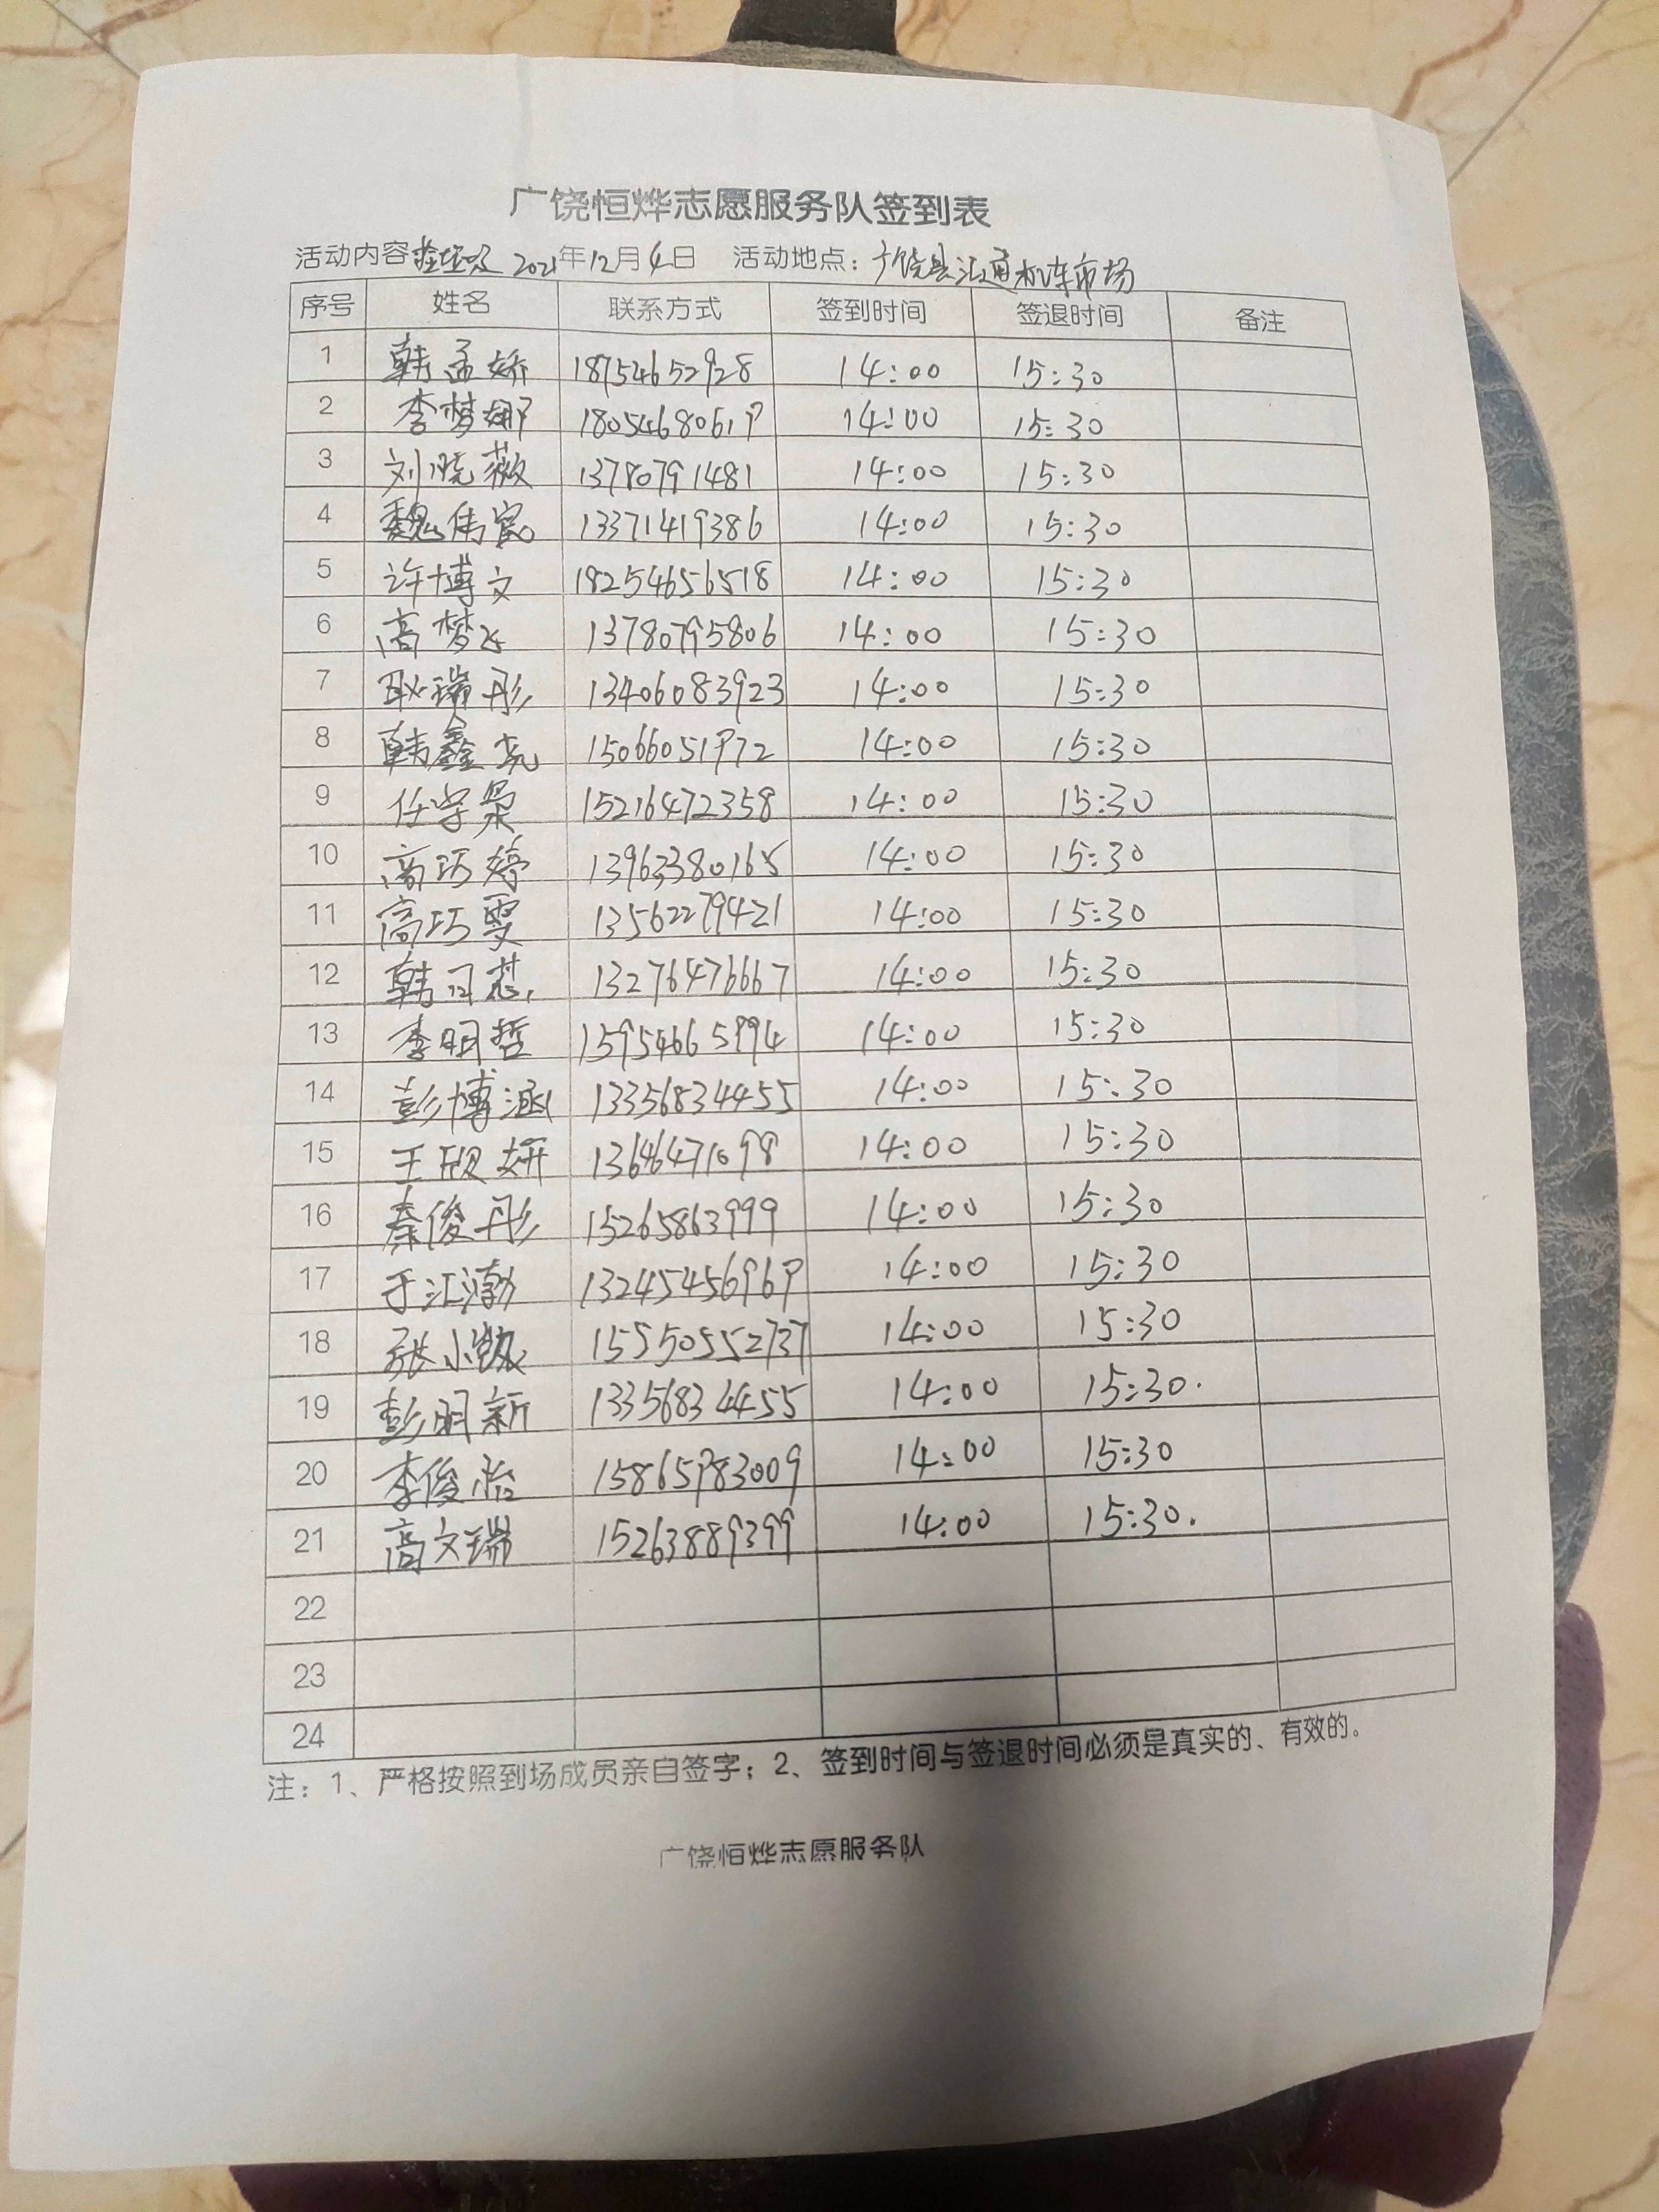 广饶恒烨志愿服务队签到表
活动内容捡垃圾 2021年12月4日 活动地点：广饶县汇通机车市场
序号 姓名 联系方式 签到时间 签退时间 备注
1 韩孟娇 18754652928 14:00 15:30
2 李梦娜 18054680619 14:00 15:30
3 刘晓薇 13780791481 14:00 15:30
4 魏伟宸 13371419386 14:00 15:30
5 许博文 18254656518 14:00 15:30
6 高梦飞 13780795806 14:00 15:30
7 耿瑞彤 13406083923 14:00 15:30
8 韩鑫尧 15066051972 14:00 15:30
9 任学枭 15216472358 14:00 15:30
10 高巧婷 13963380165 14:00 15:30
11 高巧雯 13562279421 14:00 15:30
12 韩 芯 13276476667 14:00 15:30
13 李明哲 15954665994 14:00 15:30
14 彭博涵 13356834455 14:00 15:30
15 王欣妍 13646471098 14:00 15:30
16 秦俊彤 15265863999 14:00 15:30
17 于江渤 13245456969 14:00 15:30
18 张小 15550552737 14:00 15:30
19 彭明新 13356834455 14:00 15:30.
20 李俊怡 15865983009 14:00 15:30
21 高文瑞 15263889399 14:00 15:30.
22
23
24
注：1、严格按照到场成员亲自签字；2、签到时间与签退时间必须是真实的、有效的。
广饶恒烨志愿服务队